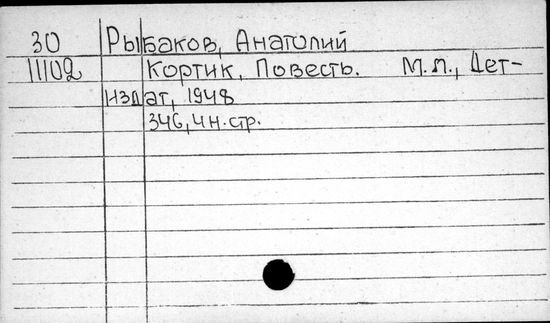 30 Рыбаков, Анатолий
11102 Кортик, Повесть. М.Л., Дет-
издат, 1948
346, 4 н. стр.